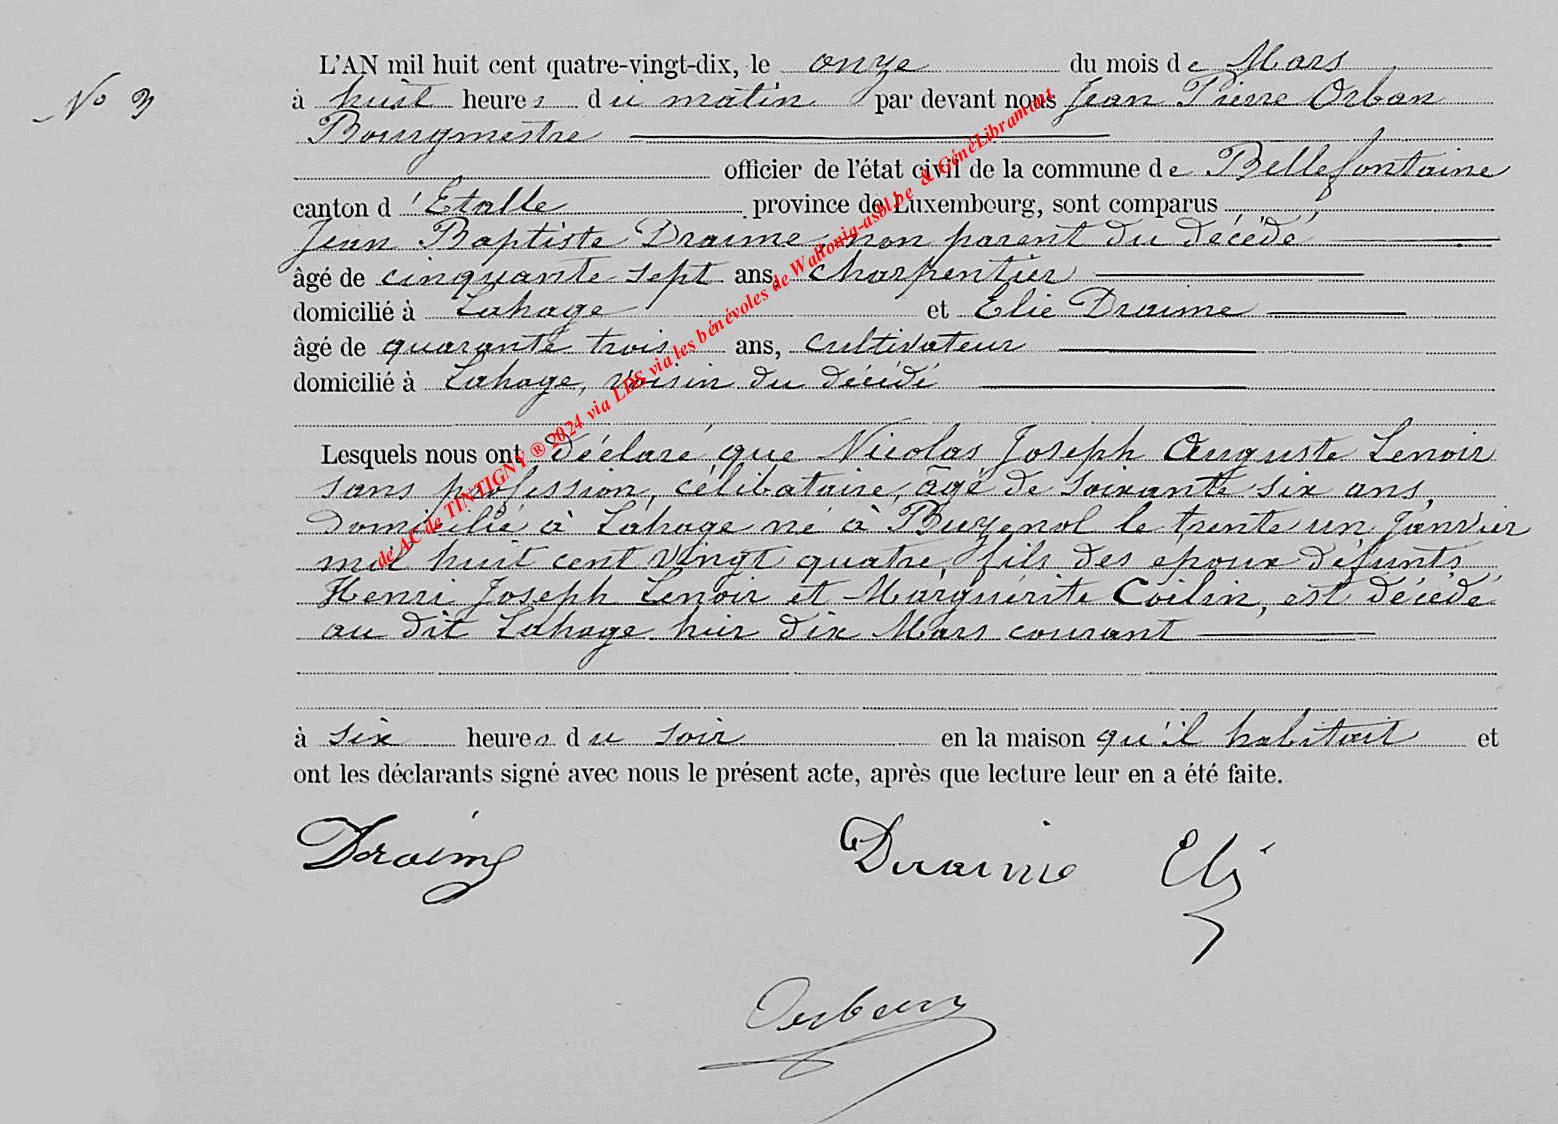 L'AN mil huit cent quatre-vingt-dix, le onze du mois de Mars
N° 3
à huit heures du matin par devant nous Jean Pierre Orban
Bourgmestre
officier de l'état civil de la commune de Bellefontaine
canton d'Etalle province de Luxembourg, sont comparus
Jean Baptiste Draime, non parent du décédé
âgé de cinquante sept ans, charpentier
domicilié à Lahage et Elie Draime
âgé de quarante trois ans, cultivateur
domicilié à Lahage, voisin du décédé
Lesquels nous ont déclaré que Nicolas Joseph Auguste Lenoir
sans profession, célibataire, âgé de soixante six ans,
domicilié à Lahage né à Buzenol le trente un Janvier
mil huit cent vingt quatre, fils des époux défunts
Henri Joseph Lenoir et Marguérite Coilin, est décédé
au dit Lahage hier dix Mars courant
à six heures du soir en la maison qu'il habitait et
ont les déclarants signé avec nous le présent acte, après que lecture leur en a été faite.
Draime Draime Elie
Orban
de AC de TINTIGNY ® 2024 via LDS via les bénévoles de Wallonia-asbl.be & GénéLibramont